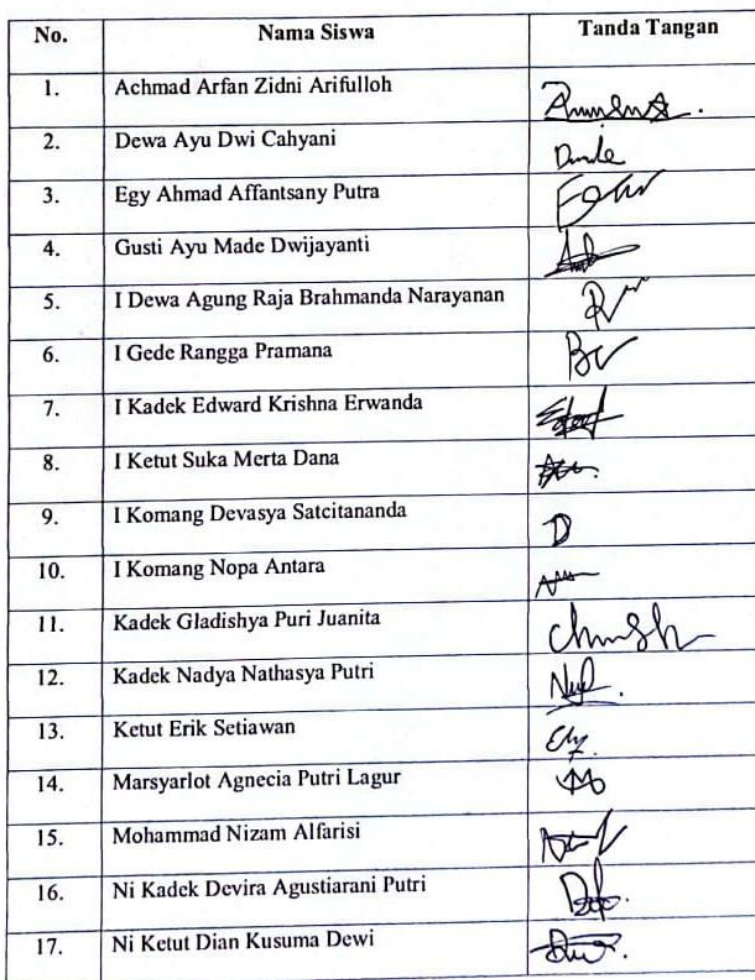 No. Nama Siswa Tanda Tangan
1. Achmad Arfan Zidni Arifulloh
2. Dewa Ayu Dwi Cahyani
3. Egy Ahmad Affantsany Putra
4. Gusti Ayu Made Dwijayanti
5. I Dewa Agung Raja Brahmanda Narayanan
6. I Gede Rangga Pramana
7. I Kadek Edward Krishna Erwanda
8. I Ketut Suka Merta Dana
9. I Komang Devasya Satcitananda
10. I Komang Nopa Antara
11. Kadek Gladishya Puri Juanita
12. Kadek Nadya Nathasya Putri
13. Ketut Erik Setiawan
14. Marsyarlot Agnecia Putri Lagur
15. Mohammad Nizam Alfarisi
16. Ni Kadek Devira Agustiarani Putri
17. Ni Ketut Dian Kusuma Dewi